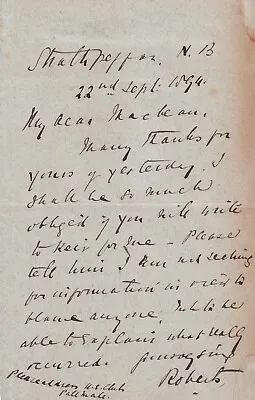 Strathpeffer. N. B
22nd Sept: 1894.
My dear Macbean,
Many thanks for
yours of yesterday. I
shall be so much
obliged if you will write
to Keir for me - Please
tell him I am not seeking
for information in view to
blame anyone, but to be
able to explain what really
occurred.
Roberts
Please address U.S. Club
Pall Mall.